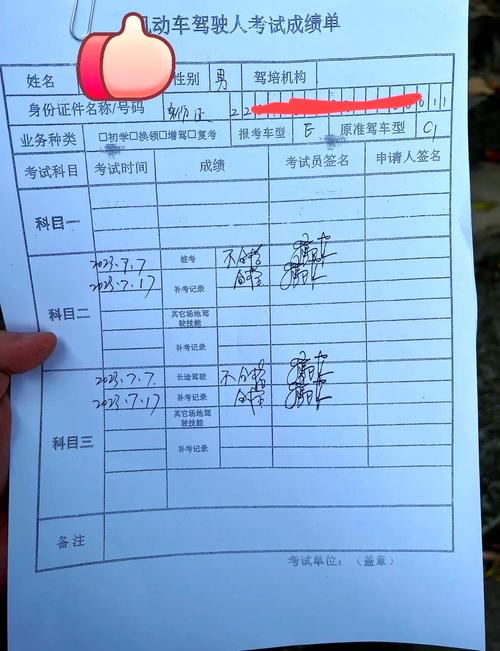 机动车驾驶人考试成绩单
姓名 性别 男 驾培机构
身份证件名称/号码 身份证 22 011
业务种类 □初学□换领□增驾□复考 报考车型 E 原准驾车型 C1
考试科目 考试时间 成绩 考试员签名 申请人签名
科目一
2023.7.7 桩考 不合格
2023.7.17 补考记录 合格
科目二
其它场地驾驶技能
补考记录
2023.7.7. 长途驾驶 不合格
2023.7.17 补考记录 合格
其它场地驾驶技能
科目三
补考记录
备注
考试单位：（盖章）